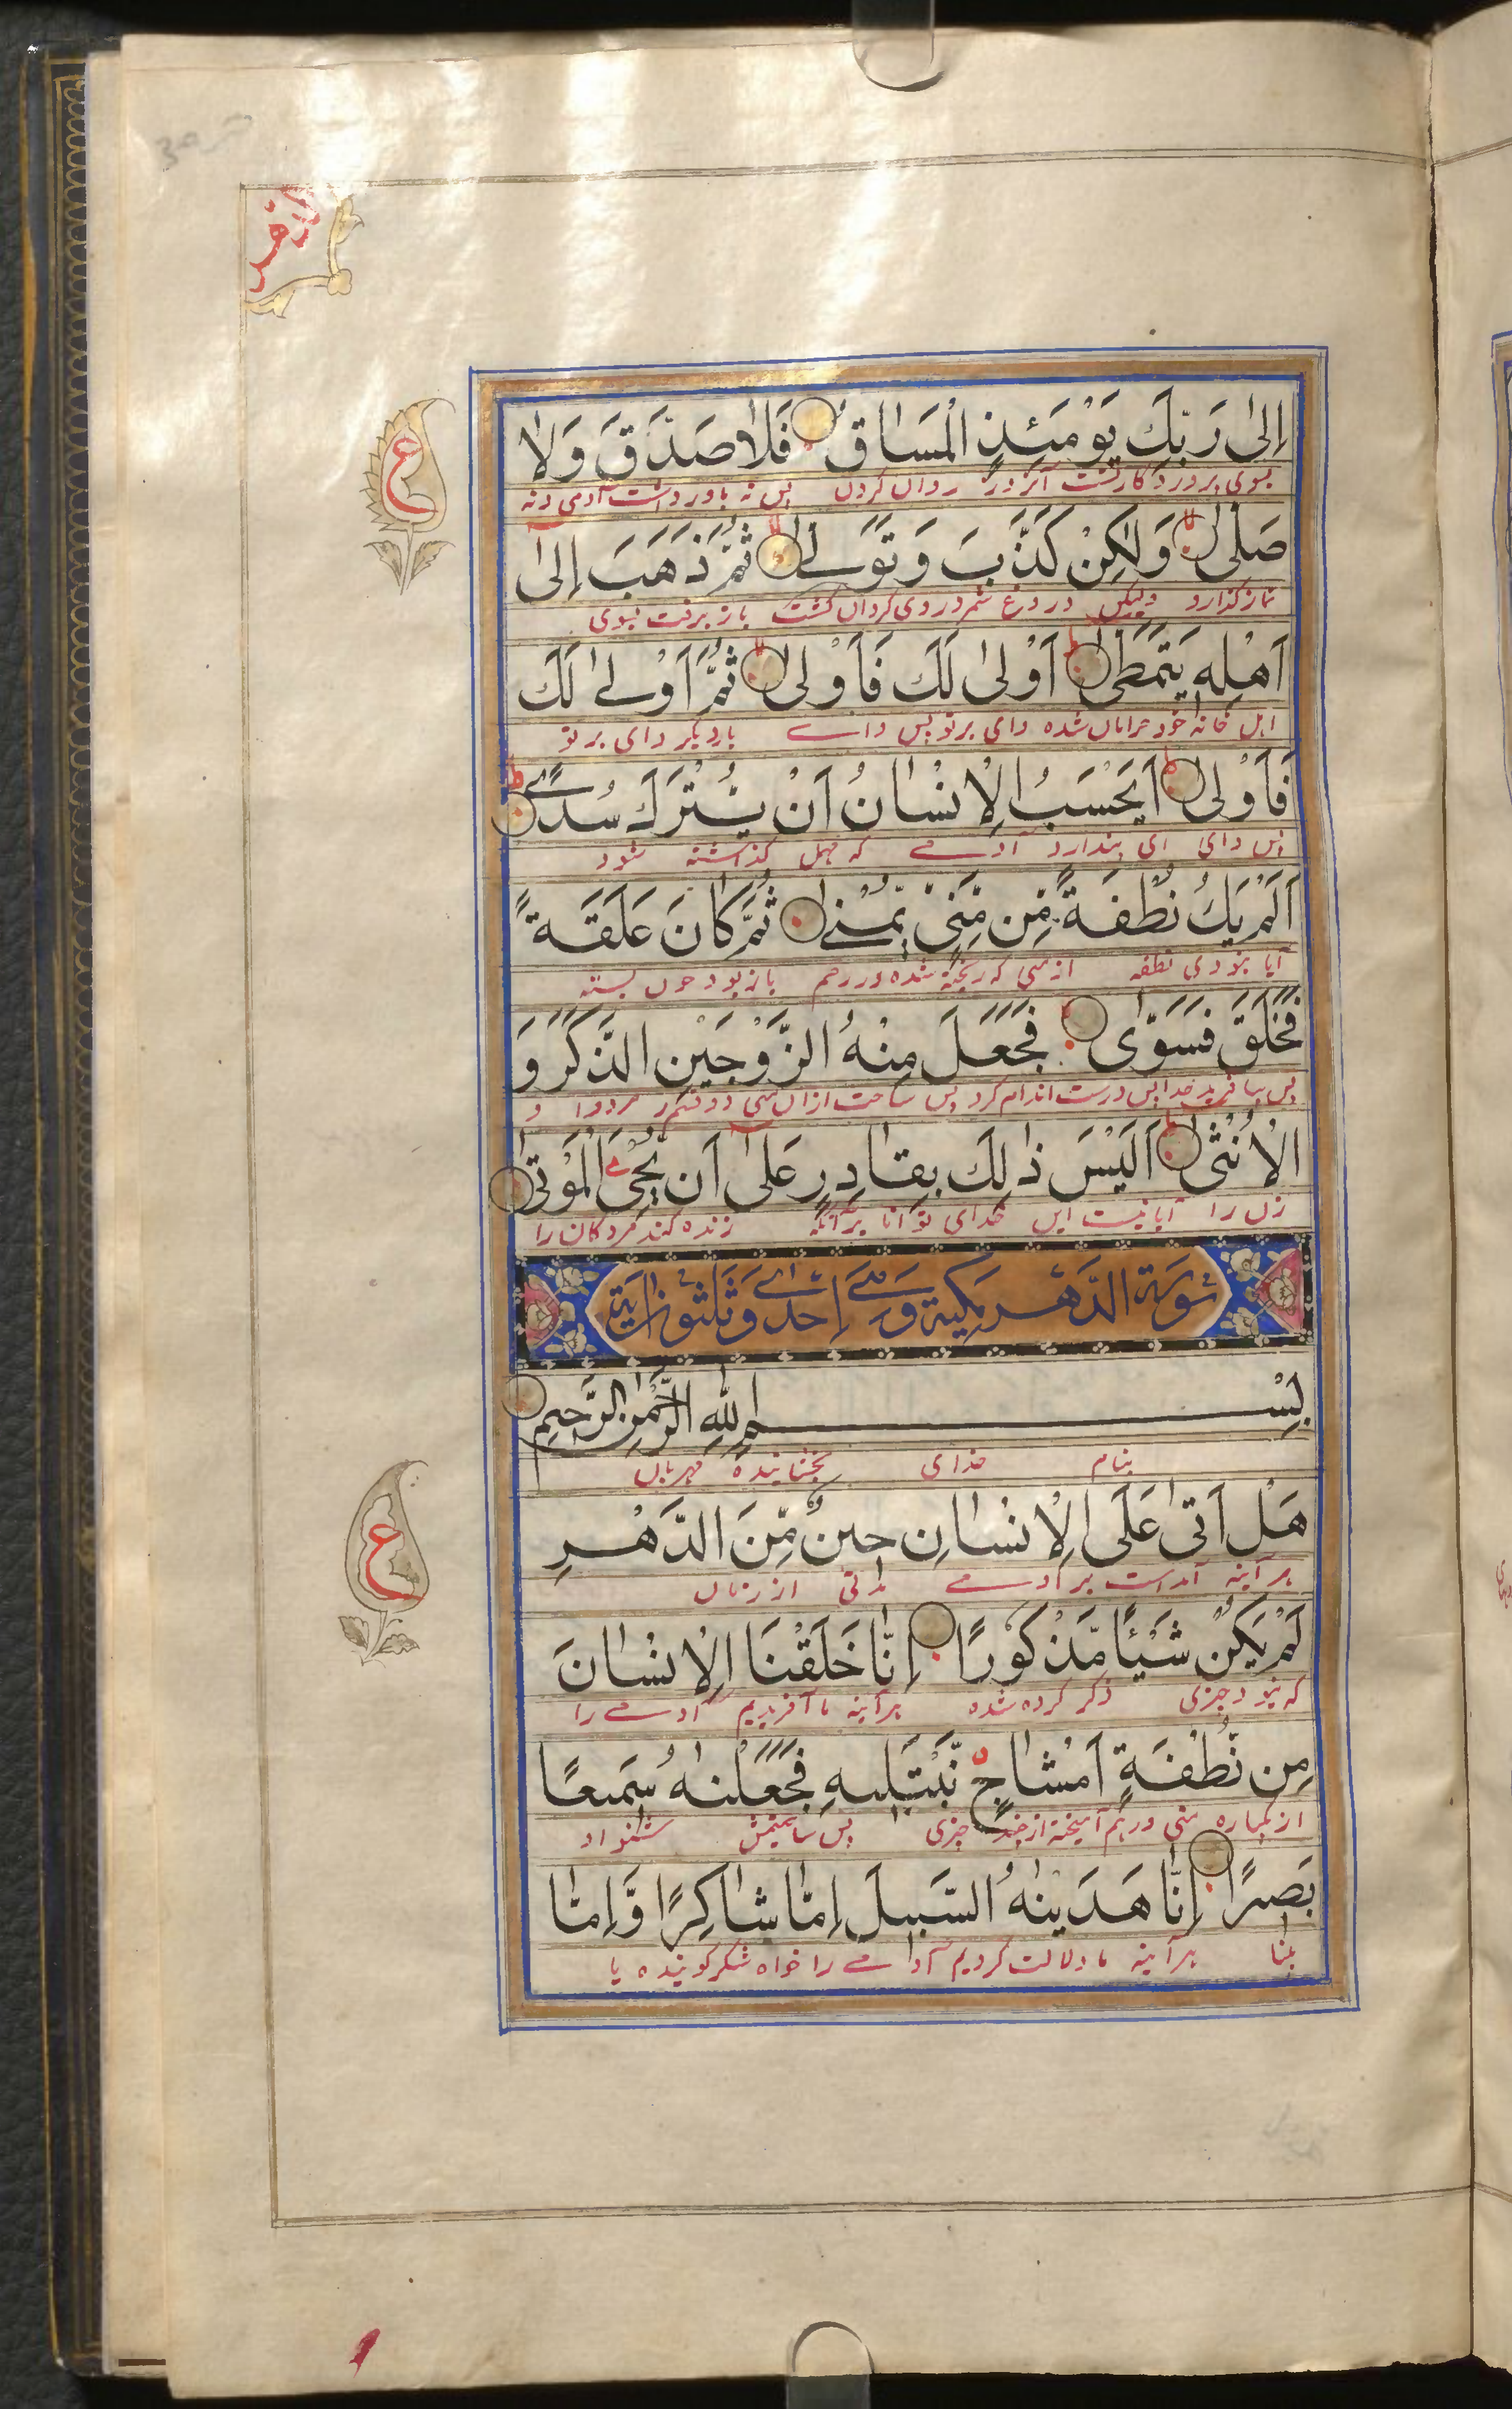 اِلٰی رَبِّكَ يَوْمَئِذٍ الْمَسَاقُ فَلَا صَدَّقَ وَلَا
بسوی پروردگار تست آنروز روان کردن پس نه باور داشت آدمی و نه
صَلّٰى وَلٰكِنْ كَذَّبَ وَتَوَلّٰے ثُمَّ ذَهَبَ اِلٰٓى
نماز گذارد ولیکن دروغ شمرد و روی گردان گشت باز برفت بسوی
اَهْلِهٖ يَتَمَطّٰى اَوْلٰى لَكَ فَاَوْلٰى ثُمَّ اَوْلٰے لَكَ
اہل خانہ خود خرامان شده وای بر تو پس وای باردیگر وای بر تو
فَاَوْلٰى اَيَحْسَبُ الْاِنْسَانُ اَنْ يُّتْرَكَ سُدًے
پس وای ای پندارد آدمے که مهمل گذاشته شود
اَلَمْ يَكُ نُطْفَةً مِّنْ مَّنِيٍّ يُّمْنٰے ثُمَّ كَانَ عَلَقَةً
آیا نبودی نطفه از منی که ریخته شده در رحم باز بود خون بسته
فَخَلَقَ فَسَوّٰى فَجَعَلَ مِنْهُ الزَّوْجَيْنِ الذَّكَرَ وَ
پس بیافرید خدا پس درست اندام کرد پس ساخت ازان منی دو قسم مرد را و
الْاُنْثٰى اَلَيْسَ ذٰلِكَ بِقَادِرٍ عَلٰٓى اَنْ يُّحْيِىَ الْمَوْتٰى
زن را آیا نیست این خدای توانا برآنکه زنده کند مردگان را
سُورَة الدَّهْر مَكِّيَّة وَهِيَ اِحْدٰے وَثَلٰثُونَ اٰيَة
بِسْمِ اللّٰهِ الرَّحْمٰنِ الرَّحِيْمِ
بنام خدای بخشاینده مهربان
هَلْ اَتٰى عَلَى الْاِنْسَانِ حِيْنٌ مِّنَ الدَّهْرِ
ہر آینہ آمده است بر آدمے مدتی از زمان
لَمْ يَكُنْ شَيْئًا مَّذْكُوْرًا اِنَّا خَلَقْنَا الْاِنْسَانَ
که نبود چیزی ذکر کرده شده ہر آینہ ما آفریدیم آدمے را
مِنْ نُّطْفَةٍ اَمْشَاجٍ نَّبْتَلِيْهِ فَجَعَلْنٰهُ سَمِيْعًا
از یکپاره منی درہم آمیخته از چند چیزی پس ساختیمش شنوا و
بَصِيْرًا اِنَّا هَدَيْنٰهُ السَّبِيْلَ اِمَّا شَاكِرًا وَّاِمَّا
بینا ہر آینہ ما دلالت کردیم آدمے را خواه شکر گوینده یا
ع
ع